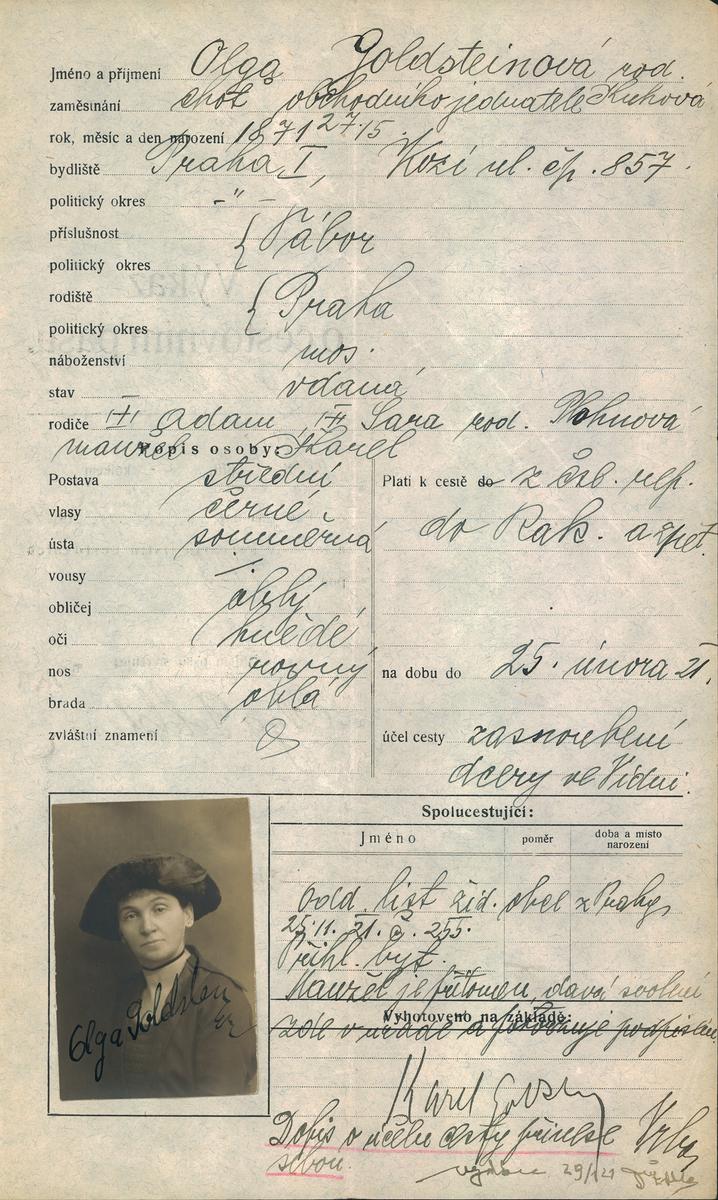 Jméno a příjmení Olga Goldsteinová rod.
zaměstnání choť obchodního jednatele Kuhová
rok, měsíc a den narození 1871 27.15.
bydliště Praha I, Kozí ul. čp. 857.
politický okres -"-
příslušnost { Tábor
politický okres
rodiště { Praha
politický okres
náboženství mos.
stav vdaná
rodiče Adam, Sara rod. Kohnová
manžel Karel
Popis osoby:
Postava střední
vlasy černé
ústa souměrná
vousy /.
obličej oblý
oči hnědé
nos rovný
brada oblá
zvláštní znamení
Platí k cestě do z čsl. rep.
do Rak. a zpět.
na dobu do 25. února 21.
účel cesty zasnoubení
dcery ve Vídni.
Spolucestující:
Jméno poměr doba a místo narození
odd. list žid. obce z Prahy
25.11. 21. č. 255.
Přihl. byt.
Manžel je přítomen, dává svolení
Vyhotoveno na základě:
zde v úřadě a potvrzuje podpisem
Karel Goldstein
Dopis o účelu cesty přinese
sebou.
vydáno 29/1 21
Olga Goldstein